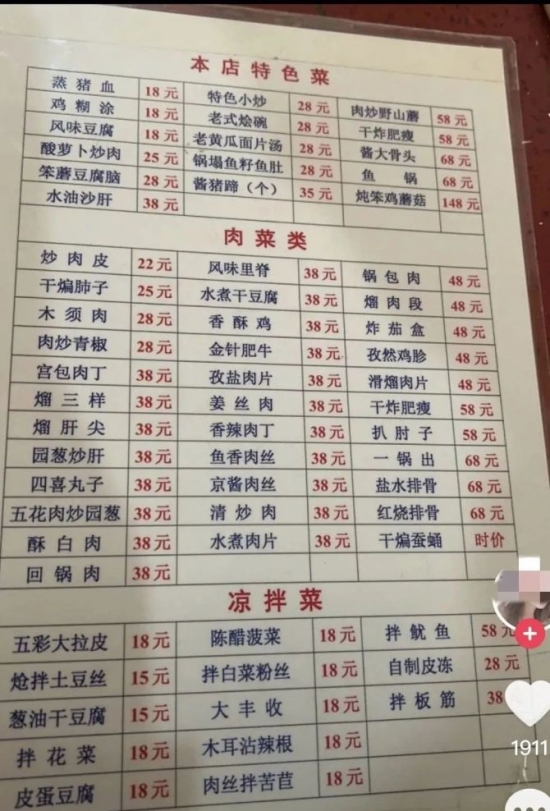 本店特色菜
蒸猪血 18元 特色小炒 28元 肉炒野山蘑 58元
鸡糊涂 18元 老式烩碗 28元 干炸肥瘦 58元
风味豆腐 18元 老黄瓜面片汤 28元 酱大骨头 68元
酸萝卜炒肉 25元 锅塌鱼籽鱼肚 28元 鱼锅 68元
笨蘑豆腐脑 28元 酱猪蹄（个） 35元 炖笨鸡蘑菇 148元
水油沙肝 38元
肉菜类
炒肉皮 22元 风味里脊 38元 锅包肉 48元
干煸肺子 25元 水煮干豆腐 38元 熘肉段 48元
木须肉 28元 香酥鸡 38元 炸茄盒 48元
肉炒青椒 28元 金针肥牛 38元 孜然鸡胗 48元
宫包肉丁 38元 孜盐肉片 38元 滑熘肉片 48元
熘三样 38元 姜丝肉 38元 干炸肥瘦 58元
熘肝尖 38元 香辣肉丁 38元 扒肘子 58元
园葱炒肝 38元 鱼香肉丝 38元 一锅出 68元
四喜丸子 38元 京酱肉丝 38元 盐水排骨 68元
五花肉炒园葱 38元 清炒肉 38元 红烧排骨 68元
酥白肉 38元 水煮肉片 38元 干煸蚕蛹 时价
回锅肉 38元
凉拌菜
五彩大拉皮 18元 陈醋菠菜 18元 拌鱿鱼 58元
炝拌土豆丝 15元 拌白菜粉丝 18元 自制皮冻 28元
葱油干豆腐 15元 大丰收 18元 拌板筋 38
拌花菜 18元 木耳沾辣根 18元
皮蛋豆腐 18元 肉丝拌苦苣 18元
1911